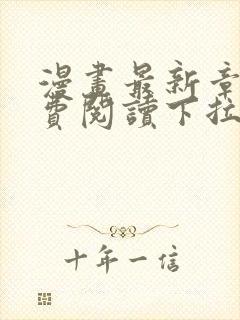 漫畫最新章
費閱讀下拉
十年一信